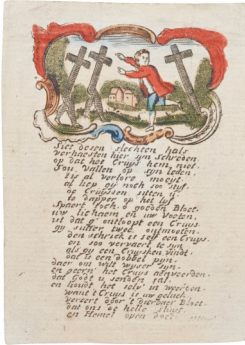 Siet desen slechten hals
verhaesten hier syn schreden
op dat het Cruys hem niet
Sou vallen op syn leden.
tis al verlore moeyt
al liep gy noch soo styf.
de Cruyssen sitten u
te dapper op het lyf
Spaert doch o goeden Bloet.
uw lichaem en uw voeten.
uit dat g' ontloopt een Cruys
gy sulter twee ontmoeten.
den schrick is self een Cruys.
en soo vervaert te syn
als gy een Cruys siet vindt.
dat is een dobbel pyn.
daer om wilt wyser syn.
en geeren het Cruys aenveerden.
dat Godt u senden sal.
en houdt het selv' in weerden.
want t' Cruys is uw geluck
vereert door t' dierbaer Bloet.
dat ons de helle sluyt
en Hemel open doet